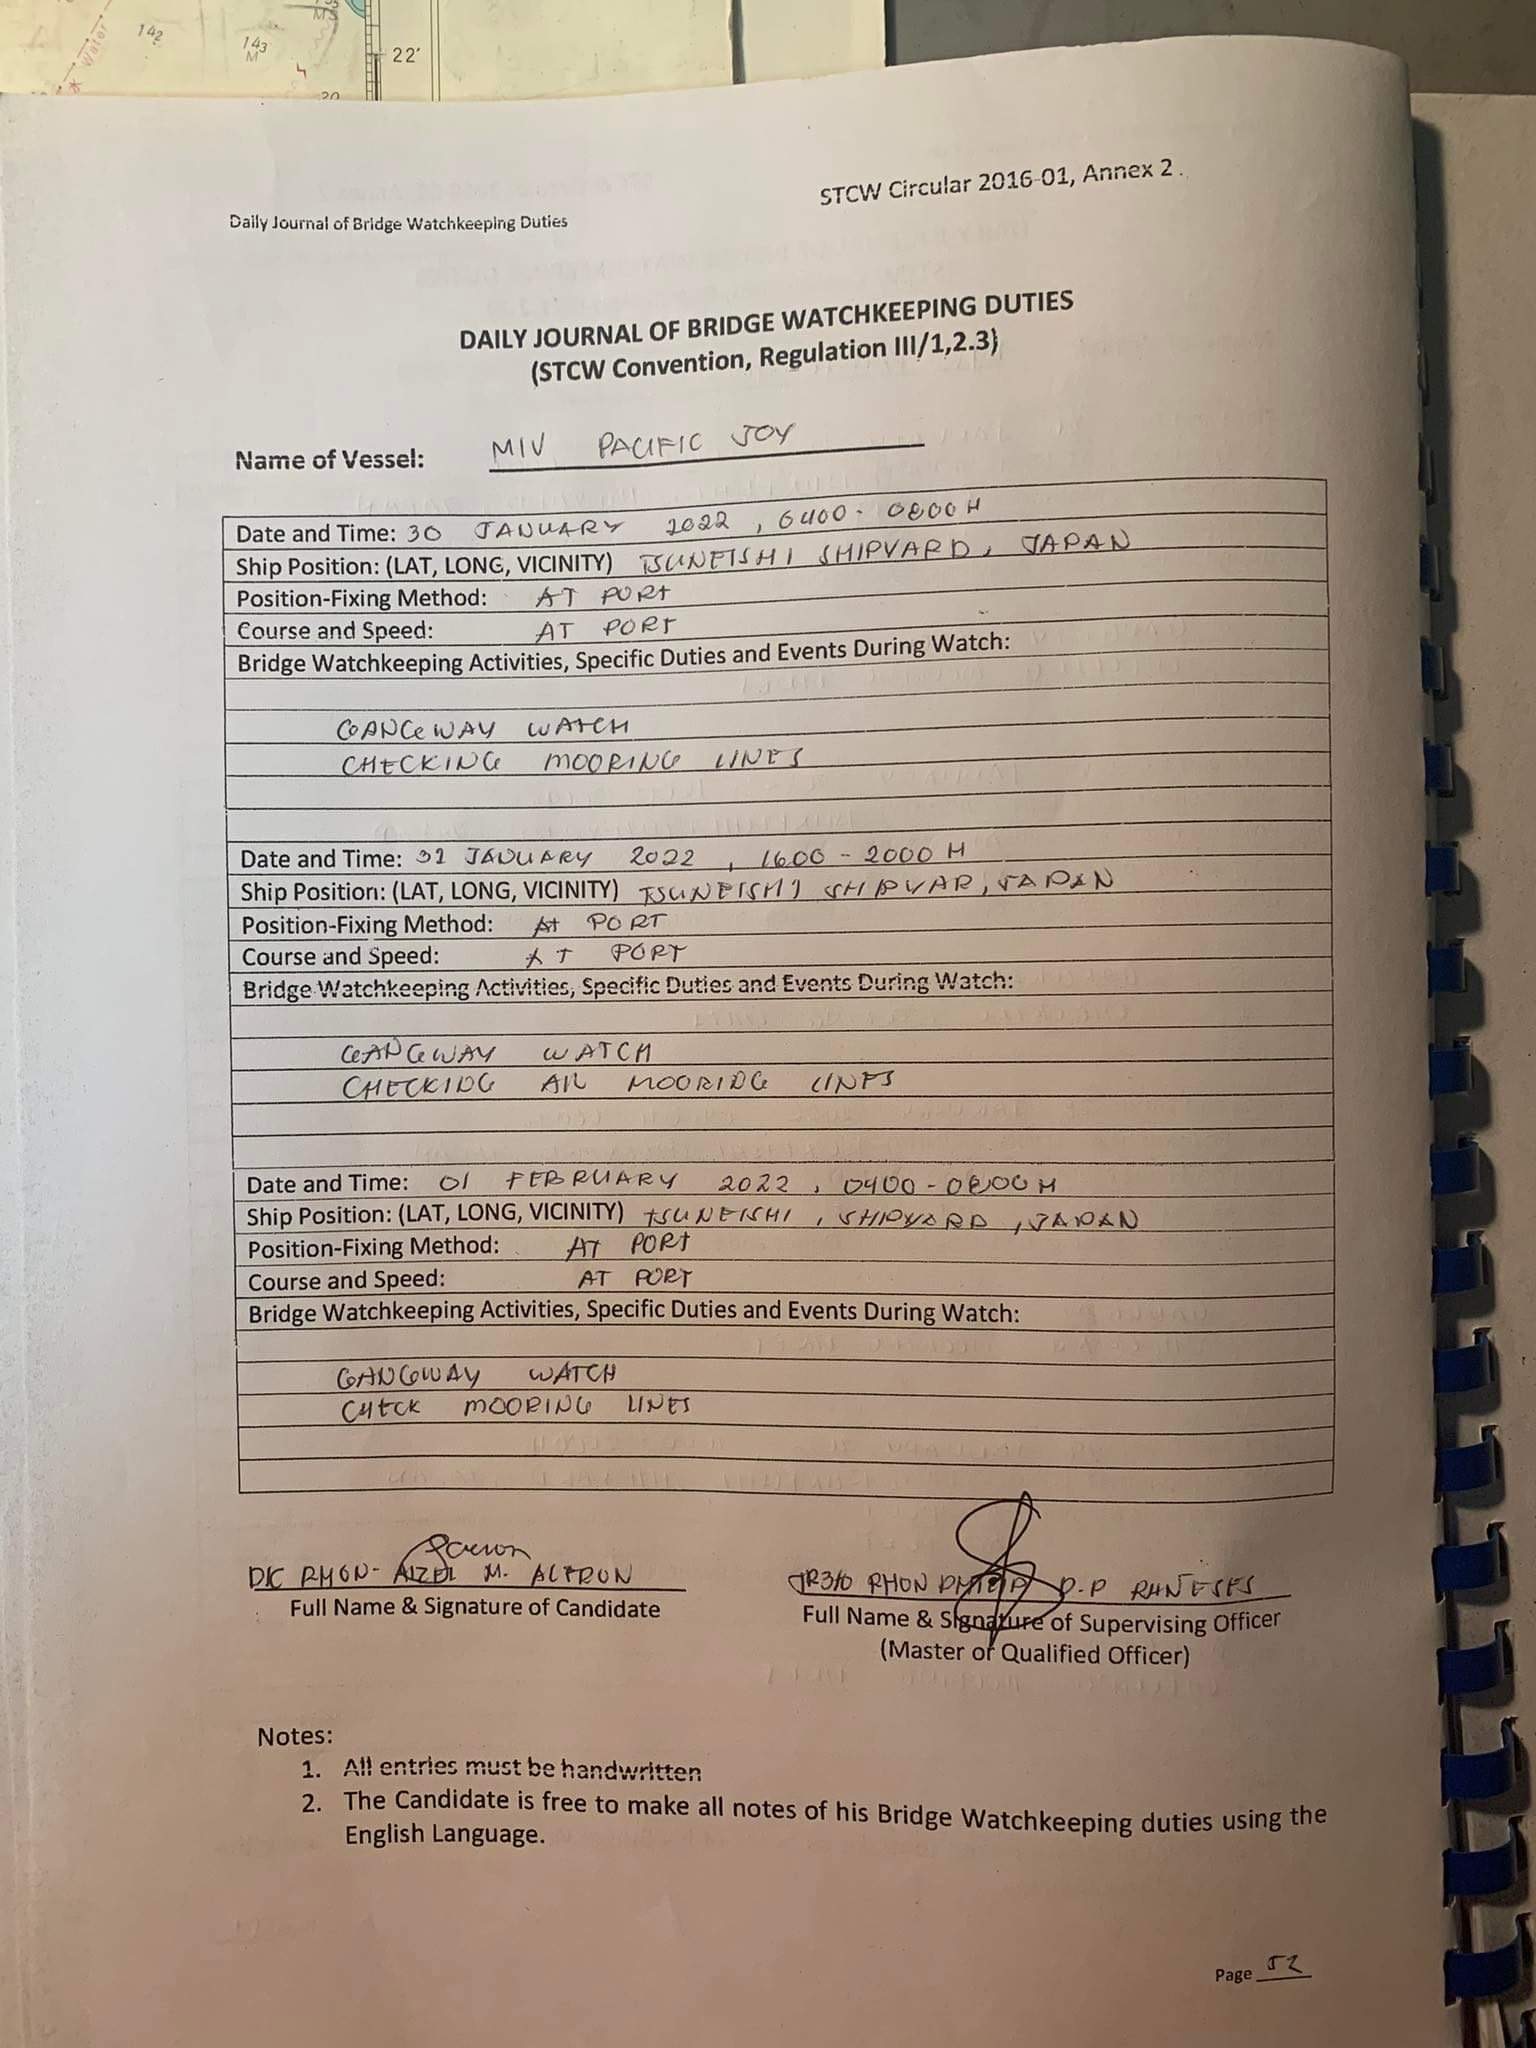 142
143
M
22'
Water
STCW Circular 2016-01, Annex 2.
Daily Journal of Bridge Watchkeeping Duties
DAILY JOURNAL OF BRIDGE WATCHKEEPING DUTIES
(STCW Convention, Regulation III/1,2.3)
Name of Vessel: M/V PACIFIC JOY
Date and Time: 30 JANUARY 2022, 0400-0800H
Ship Position: (LAT, LONG, VICINITY) TSUNEISHI SHIPYARD, JAPAN
Position-Fixing Method: AT PORT
Course and Speed: AT PORT
Bridge Watchkeeping Activities, Specific Duties and Events During Watch:
GANGWAY WATCH
CHECKING MOORING LINES
Date and Time: 31 JANUARY 2022, 1600-2000H
Ship Position: (LAT, LONG, VICINITY) TSUNEISHI SHIPYAR, JAPAN
Position-Fixing Method: At PORT
Course and Speed: AT PORT
Bridge Watchkeeping Activities, Specific Duties and Events During Watch:
GANGWAY WATCH
CHECKING ALL MOORING LINES
Date and Time: 01 FEBRUARY 2022, 0400-0800H
Ship Position: (LAT, LONG, VICINITY) TSUNEISHI, SHIPYARD, JAPAN
Position-Fixing Method: AT PORT
Course and Speed: AT PORT
Bridge Watchkeeping Activities, Specific Duties and Events During Watch:
GANGWAY WATCH
CHECK MOORING LINES
D/C RHON-AIZEL M. JR3/O RHON D.P RANESES
Full Name & Signature of Candidate
Full Name & Signature of Supervising Officer
(Master or Qualified Officer)
Notes:
1. All entries must be handwritten
2. The Candidate is free to make all notes of his Bridge Watchkeeping duties using the
English Language.
Page 52